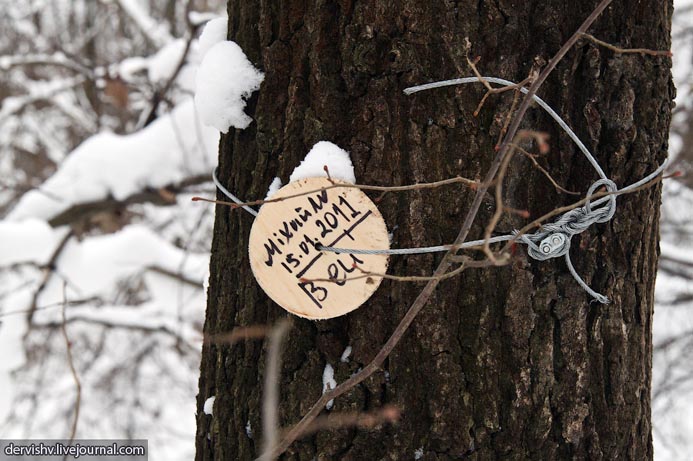 Міхайло
15.01.2011
Веи
dervishv.livejournal.com